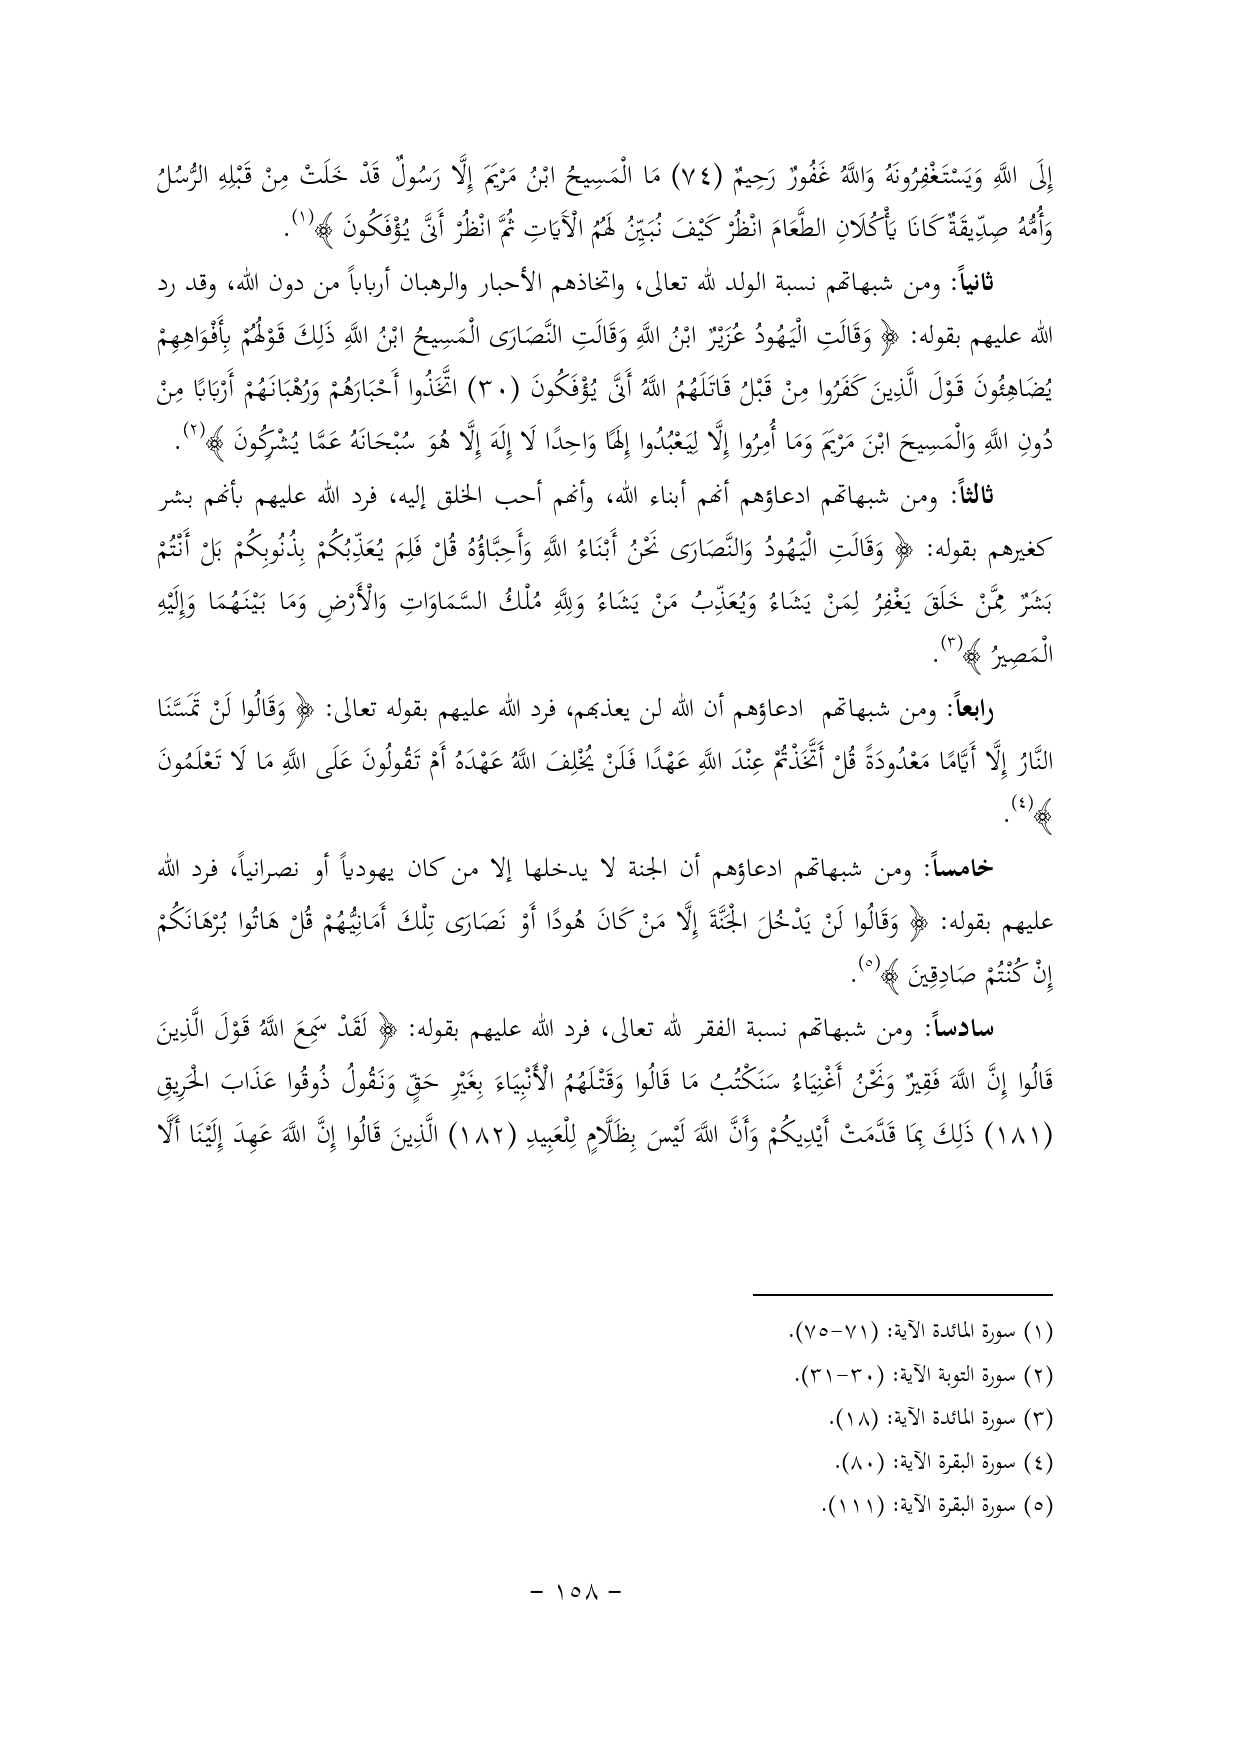 إِلَى اللَّهِ وَيَسْتَغْفِرُونَهُ وَاللَّهُ غَفُورٌ رَحِيمٌ (٧٤) مَا الْمَسِيحُ ابْنُ مَرْيَمَ إِلَّا رَسُولٌ قَدْ خَلَتْ مِنْ قَبْلِهِ الرُّسُلُ
وَأُمُّهُ صِدِّيقَةٌ كَانَا يَأْكُلَانِ الطَّعَامَ انْظُرْ كَيْفَ نُبَيِّنُ لَهُمُ الْآيَاتِ ثُمَّ انْظُرْ أَنَّى يُؤْفَكُونَ ﴾(١).
ثانياً: ومن شبهاتهم نسبة الولد لله تعالى، واتخاذهم الأحبار والرهبان أرباباً من دون الله، وقد رد
الله عليهم بقوله: ﴿ وَقَالَتِ الْيَهُودُ عُزَيْرٌ ابْنُ اللَّهِ وَقَالَتِ النَّصَارَى الْمَسِيحُ ابْنُ اللَّهِ ذَلِكَ قَوْلُهُمْ بِأَفْوَاهِهِمْ
يُضَاهِئُونَ قَوْلَ الَّذِينَ كَفَرُوا مِنْ قَبْلُ قَاتَلَهُمُ اللَّهُ أَنَّى يُؤْفَكُونَ (٣٠) اتَّخَذُوا أَحْبَارَهُمْ وَرُهْبَانَهُمْ أَرْبَابًا مِنْ
دُونِ اللَّهِ وَالْمَسِيحَ ابْنَ مَرْيَمَ وَمَا أُمِرُوا إِلَّا لِيَعْبُدُوا إِلَهًا وَاحِدًا لَا إِلَهَ إِلَّا هُوَ سُبْحَانَهُ عَمَّا يُشْرِكُونَ ﴾(٢).
ثالثاً: ومن شبهاتهم ادعاؤهم أنهم أبناء الله، وأنهم أحب الخلق إليه، فرد الله عليهم بأنهم بشر
كغيرهم بقوله: ﴿ وَقَالَتِ الْيَهُودُ وَالنَّصَارَى نَحْنُ أَبْنَاءُ اللَّهِ وَأَحِبَّاؤُهُ قُلْ فَلِمَ يُعَذِّبُكُمْ بِذُنُوبِكُمْ بَلْ أَنْتُمْ
بَشَرٌ مِمَّنْ خَلَقَ يَغْفِرُ لِمَنْ يَشَاءُ وَيُعَذِّبُ مَنْ يَشَاءُ وَلِلَّهِ مُلْكُ السَّمَاوَاتِ وَالْأَرْضِ وَمَا بَيْنَهُمَا وَإِلَيْهِ
الْمَصِيرُ ﴾(٣).
رابعاً: ومن شبهاتهم ادعاؤهم أن الله لن يعذبهم، فرد الله عليهم بقوله تعالى: ﴿ وَقَالُوا لَنْ تَمَسَّنَا
النَّارُ إِلَّا أَيَّامًا مَعْدُودَةً قُلْ أَتَّخَذْتُمْ عِنْدَ اللَّهِ عَهْدًا فَلَنْ يُخْلِفَ اللَّهُ عَهْدَهُ أَمْ تَقُولُونَ عَلَى اللَّهِ مَا لَا تَعْلَمُونَ
﴾(٤).
خامساً: ومن شبهاتهم ادعاؤهم أن الجنة لا يدخلها إلا من كان يهودياً أو نصرانياً، فرد الله
عليهم بقوله: ﴿ وَقَالُوا لَنْ يَدْخُلَ الْجَنَّةَ إِلَّا مَنْ كَانَ هُودًا أَوْ نَصَارَى تِلْكَ أَمَانِيُّهُمْ قُلْ هَاتُوا بُرْهَانَكُمْ
إِنْ كُنْتُمْ صَادِقِينَ ﴾(٥).
سادساً: ومن شبهاتهم نسبة الفقر لله تعالى، فرد الله عليهم بقوله: ﴿ لَقَدْ سَمِعَ اللَّهُ قَوْلَ الَّذِينَ
قَالُوا إِنَّ اللَّهَ فَقِيرٌ وَنَحْنُ أَغْنِيَاءُ سَنَكْتُبُ مَا قَالُوا وَقَتْلَهُمُ الْأَنْبِيَاءَ بِغَيْرِ حَقٍّ وَنَقُولُ ذُوقُوا عَذَابَ الْحَرِيقِ
(١٨١) ذَلِكَ بِمَا قَدَّمَتْ أَيْدِيكُمْ وَأَنَّ اللَّهَ لَيْسَ بِظَلَّامٍ لِلْعَبِيدِ (١٨٢) الَّذِينَ قَالُوا إِنَّ اللَّهَ عَهِدَ إِلَيْنَا أَلَّا
(١) سورة المائدة الآية: (٧١-٧٥).
(٢) سورة التوبة الآية: (٣٠-٣١).
(٣) سورة المائدة الآية: (١٨).
(٤) سورة البقرة الآية: (٨٠).
(٥) سورة البقرة الآية: (١١١).
- ١٥٨ -